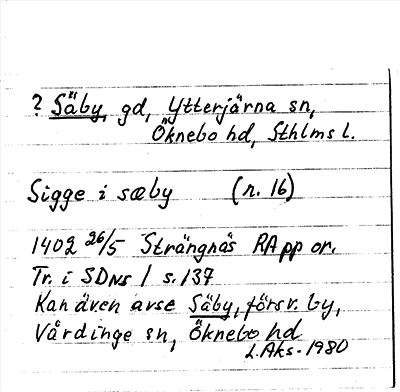 ? Säby, gd, Ytterjärna sn,
Öknebo hd, Sthlms l.
Sigge i sæby (n. 16)
1402 26/5 Strängnäs RApp or.
Tr. i SDns 1 s. 137
Kan även avse Säby, försv. by,
Vårdinge sn, Öknebo hd
L.Aks. 1980